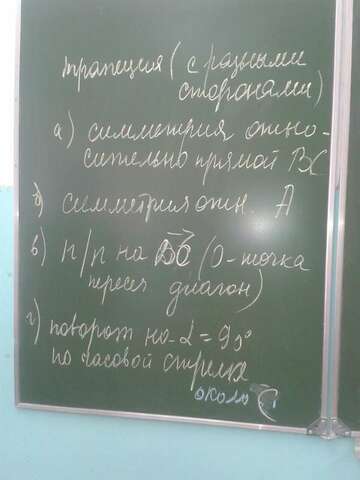 трапеция (с разными
сторонами)
а) симметрия отно-
сительно прямой BC
б) симметрия отн. A
в) п/п на (O - точка
пересеч диагон)
г) поворот на α = 90°
по часовой стрелке
около C